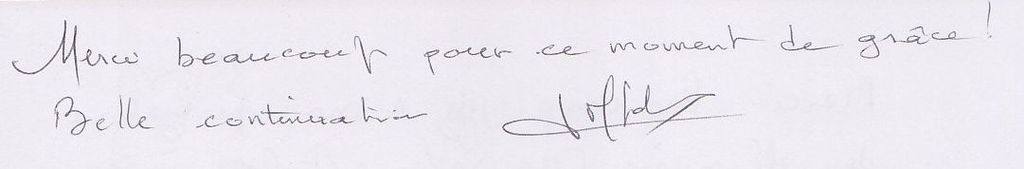 Merci beaucoup pour ce moment de grâce!
Belle continuation